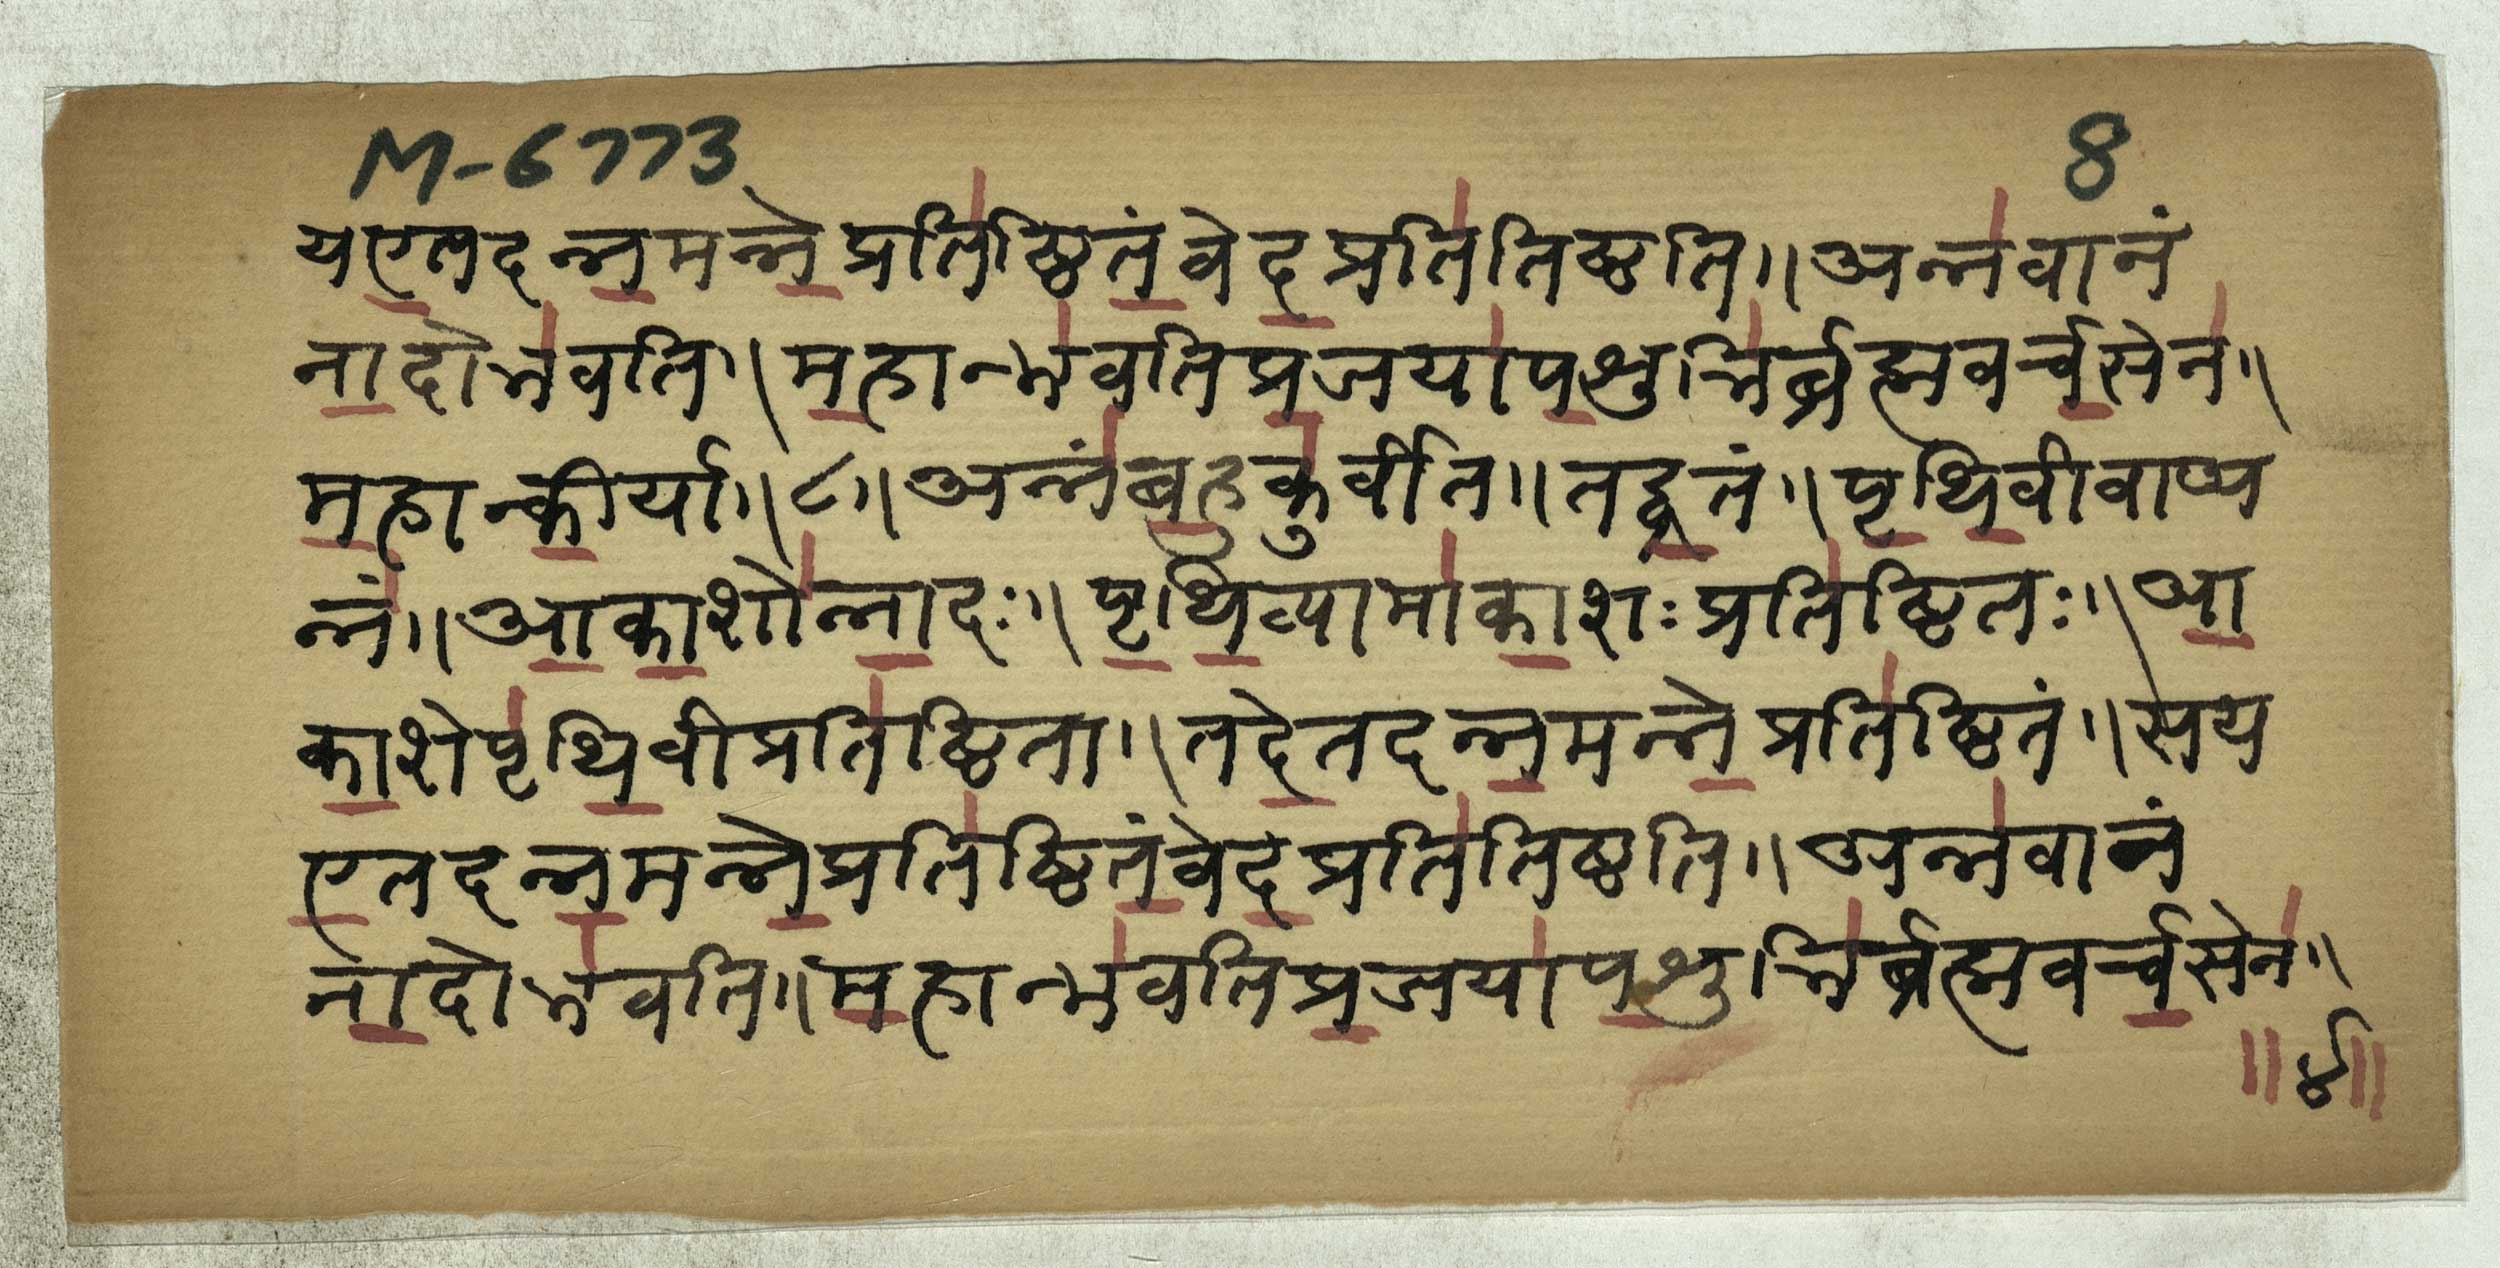 M-6773 8
यएतदन्नमन्ने प्रतिष्ठितं वेद प्रतितिष्ठति॥ अन्नवानं
नादो भवति॥ महान्भवति प्रजया पशुभिर्ब्रह्मवर्च्चसेन॥
महान्कीर्या॥८॥ अन्नं बहु कुर्वीत॥ तद्व्रतं॥ पृथिवी वाप्य
न्नं॥ आकाशोन्नादः॥ पृथिव्यामाकाशः प्रतिष्ठितः॥ आ
काशे पृथिवी प्रतिष्ठिता॥ तदेतदन्नमन्ने प्रतिष्ठितं॥ सय
एतदन्नमन्ने प्रतिष्ठितं वेद प्रतितिष्ठति॥ अन्नवानं
नादो भवति॥ महान्भवति प्रजया पशुभिर्ब्रह्मवर्च्चसेन॥
॥४॥